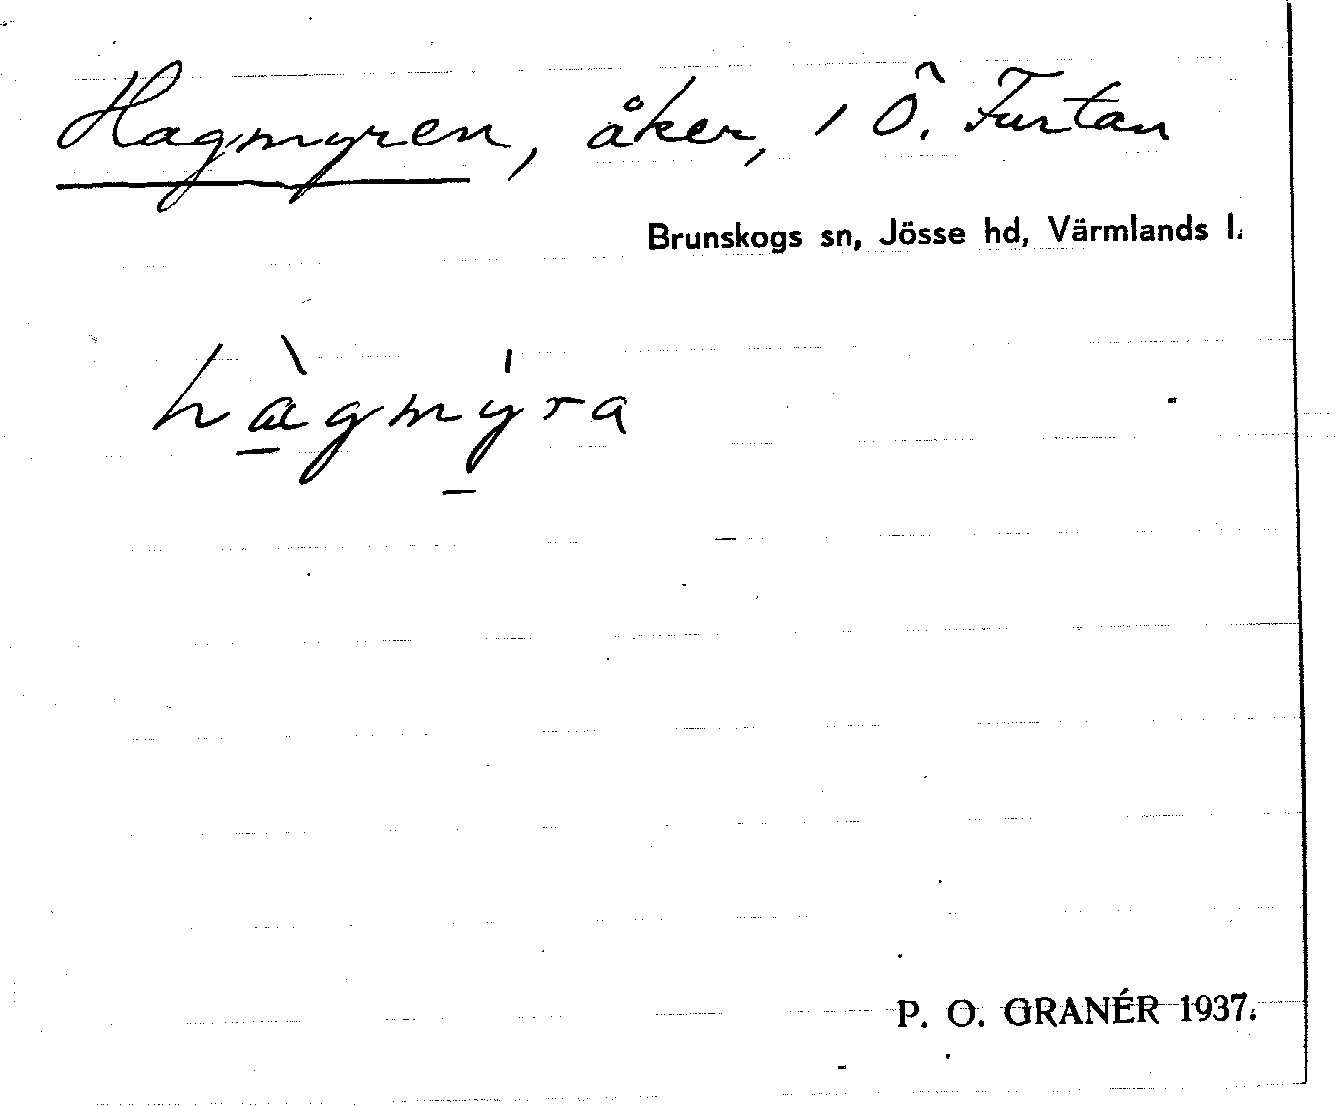 Hagmyren, åker, i Ö. Furtan
Brunskogs sn, Jösse hd, Värmlands l.
hàgmýra
P. O. GRANÉR 1937.